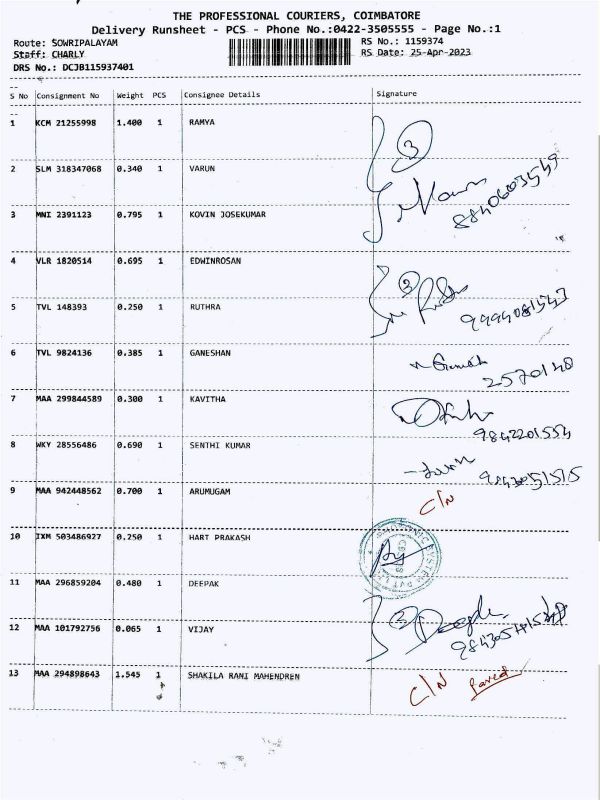 THE PROFESSIONAL COURIERS, COIMBATORE
Delivery Runsheet - PCS - Phone No.:0422-3505555 - Page No.:1
Route: SOWRIPALAYAM RS No.: 1159374
Staff: CHARLY RS Date: 25-Apr-2023
DRS No.: DCJB115937401
S No Consignment No Weight PCS Consignee Details Signature
1 KCM 21255998 1.400 1 RAMYA
3
2 SLM 318347068 0.340 1 VARUN
3 MNI 2391123 0.795 1 KOVIN JOSEKUMAR
4 VLR 1820514 0.695 1 EDWINROSAN
3
5 TVL 148393 0.250 1 RUTHRA
9994081543
6 TVL 9824136 0.385 1 GANESHAN
2570140
7 MAA 299844589 0.300 1 KAVITHA
9842201554
8 WKY 28556486 0.690 1 SENTHI KUMAR
9 MAA 942448562 0.700 1 ARUMUGAM
C/N
10 IXM 503486927 0.250 1 HART PRAKASH
11 MAA 296859204 0.480 1 DEEPAK
3 Deepak
12 MAA 101792756 0.065 1 VIJAY
13 MAA 294898643 1.545 1 SHAKILA RANI MAHENDREN
C/N